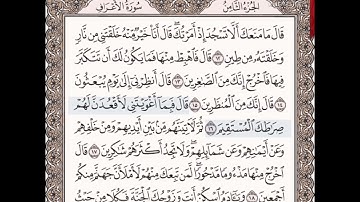 الجزء الثامن سورة الأعراف
قَالَ مَا مَنَعَكَ أَلَّا تَسْجُدَ إِذْ أَمَرْتُكَ ۖ قَالَ أَنَا۠ خَيْرٌ مِّنْهُ خَلَقْتَنِي مِن نَّارٍ
وَخَلَقْتَهُۥ مِن طِينٍ ١٢ قَالَ فَٱهْبِطْ مِنْهَا فَمَا يَكُونُ لَكَ أَن تَتَكَبَّرَ
فِيهَا فَٱخْرُجْ إِنَّكَ مِنَ ٱلصَّٰغِرِينَ ١٣ قَالَ أَنظِرْنِيٓ إِلَىٰ يَوْمِ يُبْعَثُونَ
١٤ قَالَ إِنَّكَ مِنَ ٱلْمُنظَرِينَ ١٥ قَالَ فَبِمَآ أَغْوَيْتَنِي لَأَقْعُدَنَّ لَهُمْ
صِرَٰطَكَ ٱلْمُسْتَقِيمَ ١٦ ثُمَّ لَـَٔاتِيَنَّهُم مِّنۢ بَيْنِ أَيْدِيهِمْ وَمِنْ خَلْفِهِمْ
وَعَنْ أَيْمَٰنِهِمْ وَعَن شَمَآئِلِهِمْ ۖ وَلَا تَجِدُ أَكْثَرَهُمْ شَٰكِرِينَ ١٧ قَالَ
ٱخْرُجْ مِنْهَا مَذْءُومًا مَّدْحُورًا ۖ لَّمَن تَبِعَكَ مِنْهُمْ لَأَمْلَأَنَّ جَهَنَّمَ مِنكُمْ
أَجْمَعِينَ ١٨ وَيَٰٓـَٔادَمُ ٱسْكُنْ أَنتَ وَزَوْجُكَ ٱلْجَنَّةَ فَكُلَا مِنْ حَيْثُ